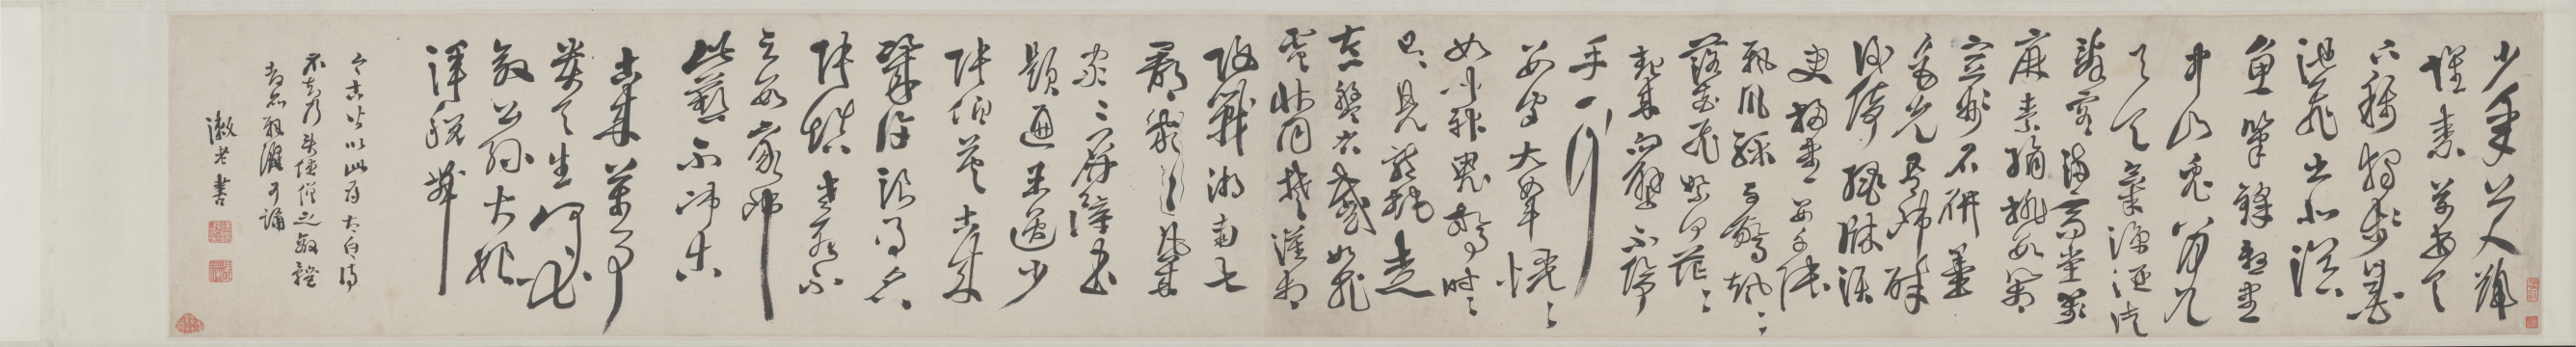 少年上人號
懷素草書天
下稱獨步墨
池飛出北溟
魚筆鋒殺盡
中山兔八月九
月天氣涼酒徒
詞客滿高堂箋
麻素絹排數箱
宣州石硯墨
色光吾師醉
後倚繩床須
臾掃盡數千張
飄風驟雨驚颯颯
落花飛雪何茫茫
起來向壁不停
手一行
數字大如斗恍恍
如聞神鬼驚時時
只見龍蛇走
左盤右蹙如飛
電狀同楚漢相
攻戰湖南七
郡凡幾家
家家屏障書
題遍王逸少
張伯英古來
幾許浪得名
張顛老死不
足數吾師
此藝不師古
古來萬事
貴天生何必
要公孫大娘
渾脫舞
今古皆以此為太白詩
不知乃
可誦
漱老書